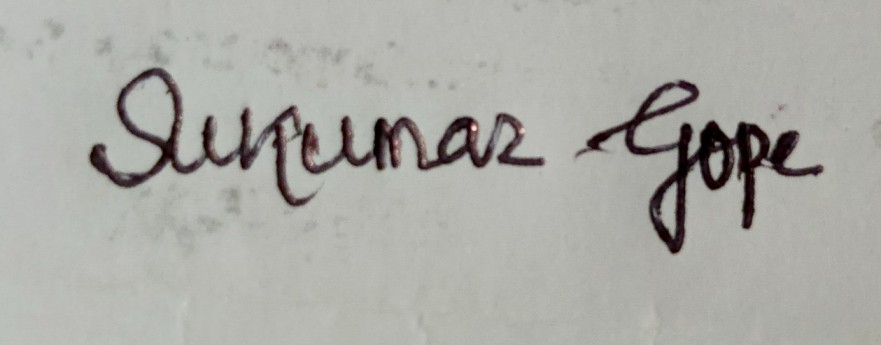 Sukumar Gope